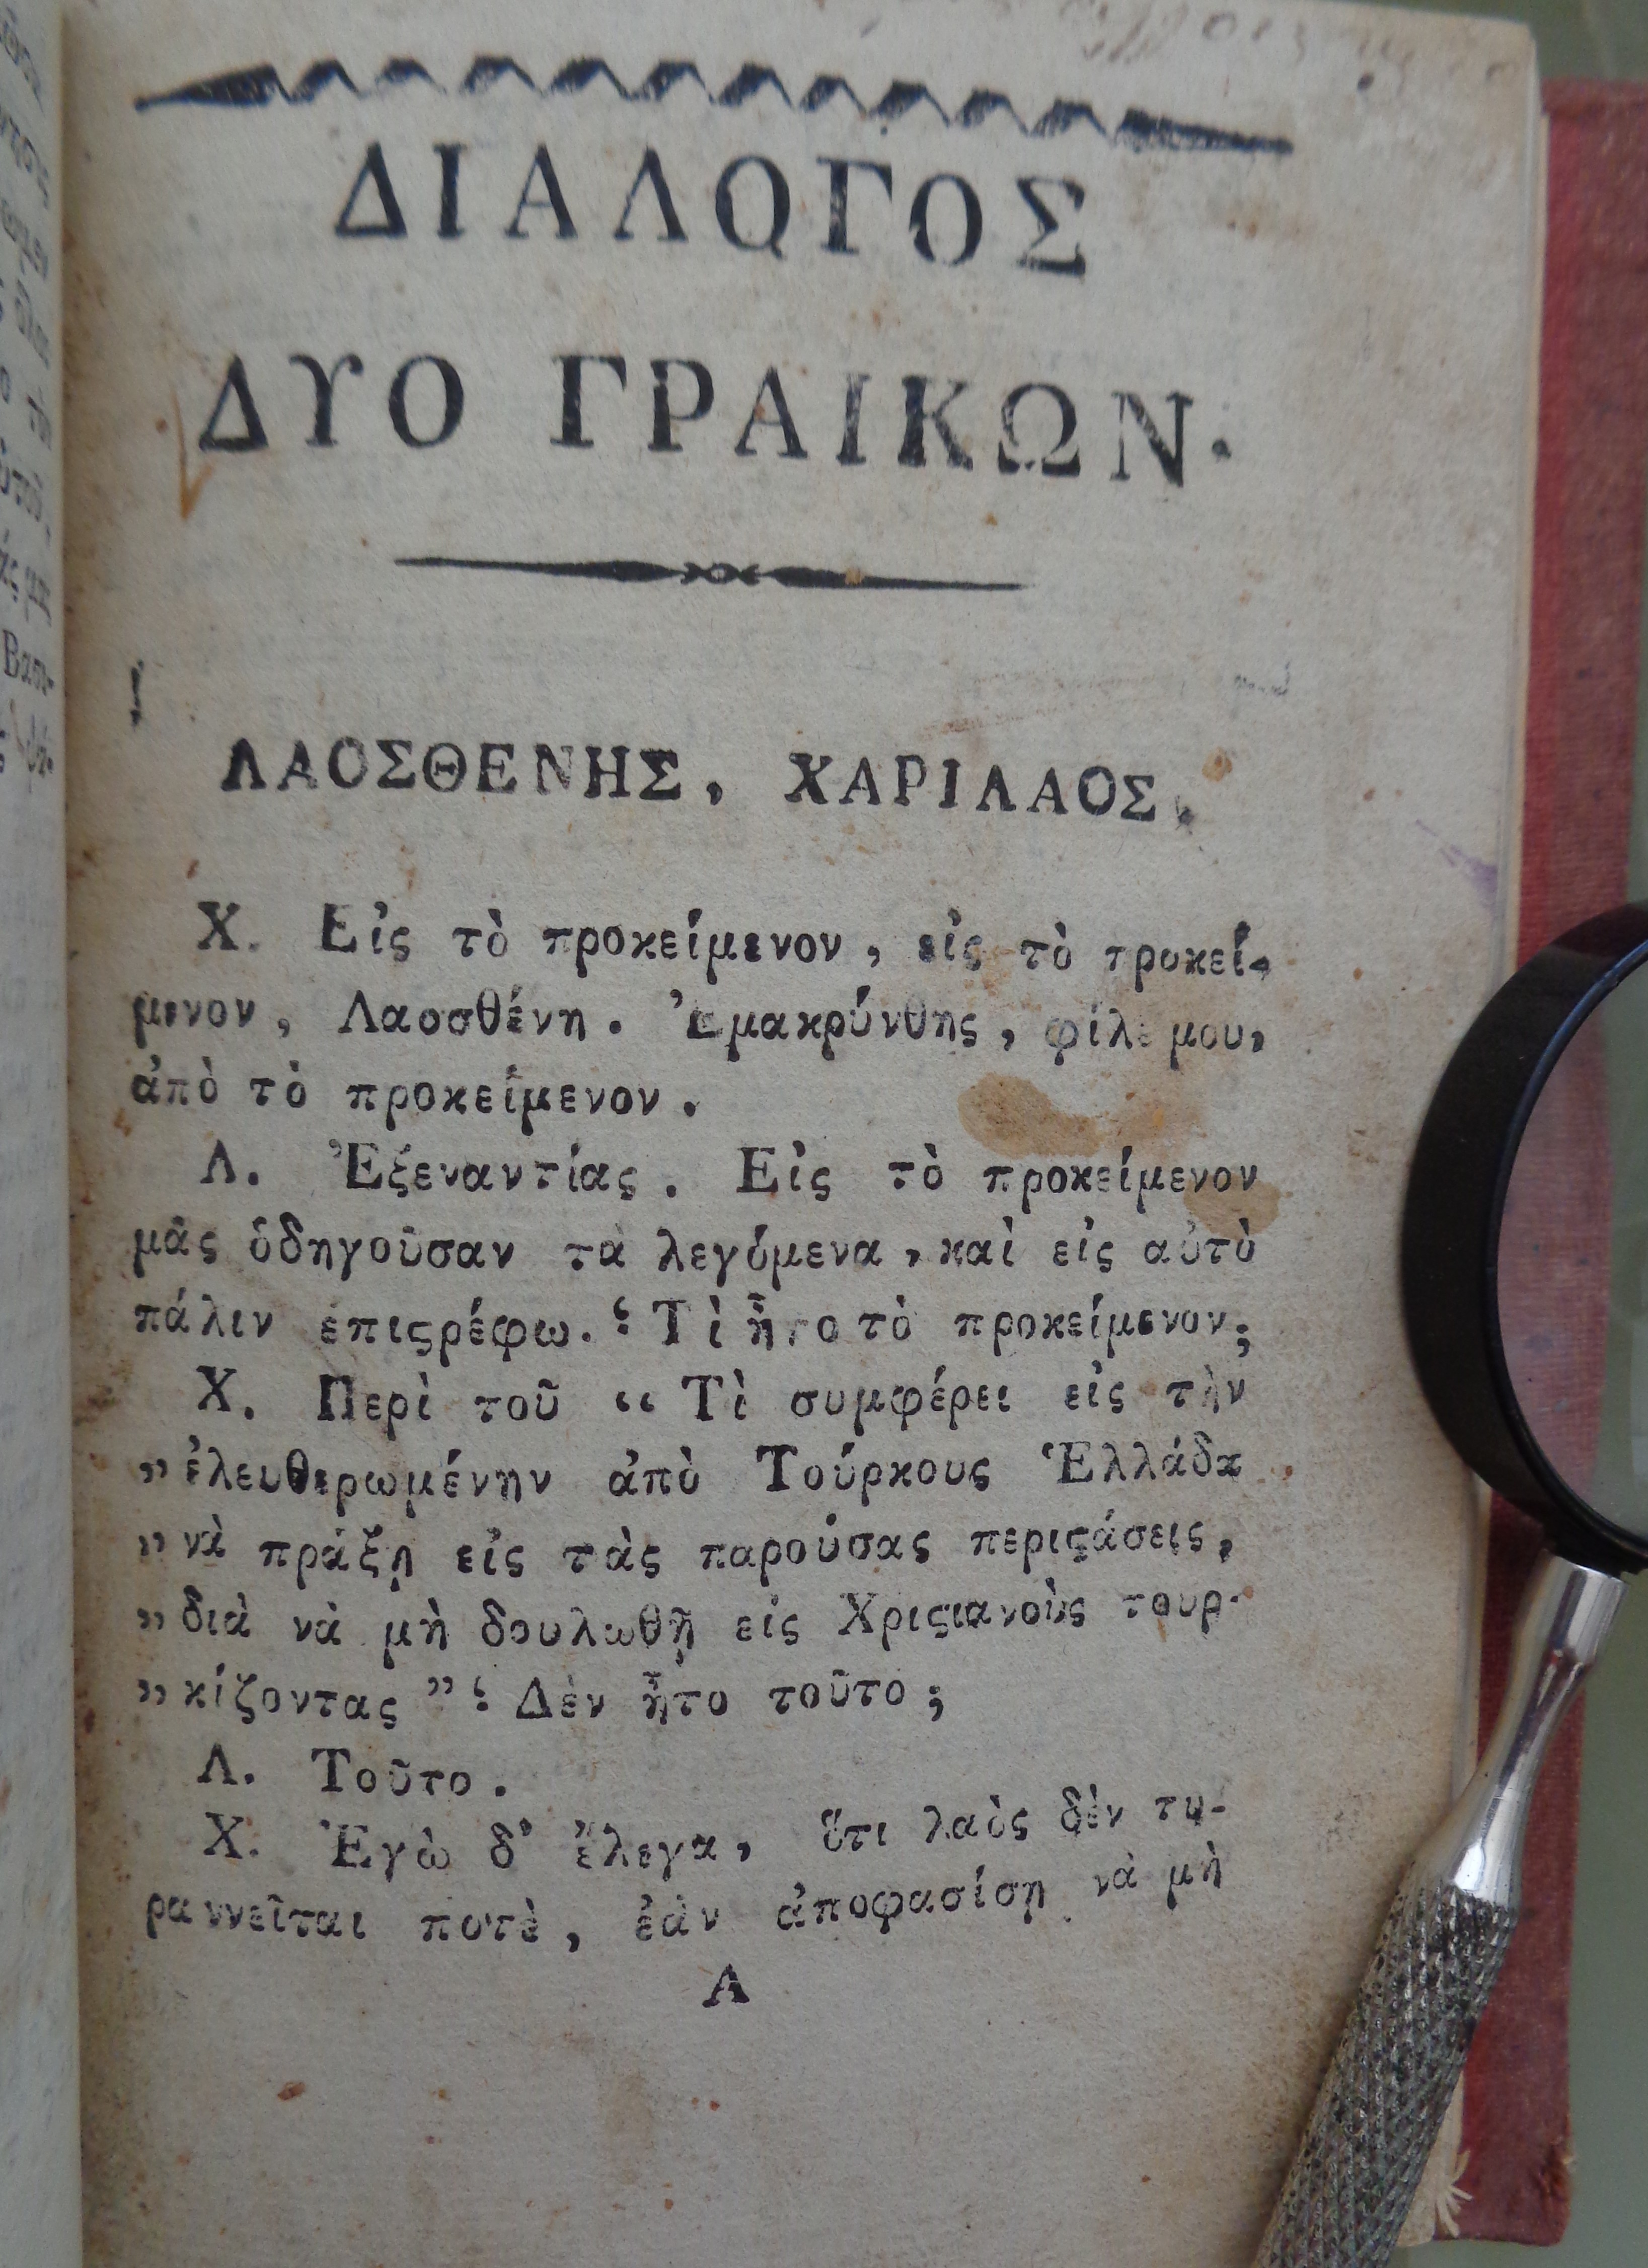 ΔΙΑΛΟΓΟΣ
ΔΥΟ ΓΡΑΙΚΩΝ.
ΛΑΟΣΘΕΝΗΣ, ΧΑΡΙΛΑΟΣ.
Χ. Εἰς τὸ προκείμενον, εἰς τὸ προκεί-
μενον, Λαοσθένη. Ἐμακρύνθης, φίλε μου,
ἀπὸ τὸ προκείμενον.
Λ. Ἐξεναντίας. Εἰς τὸ προκείμενον
μᾶς ὁδηγοῦσαν τὰ λεγόμενα, καὶ εἰς αὐτὸ
πάλιν ἐπιςρέφω. ⸵ Τὶ ἦτο τὸ προκείμενον;
Χ. Περὶ τοῦ “ Τὶ συμφέρει εἰς τὴν
” ἐλευθερωμένην ἀπὸ Τούρκους Ἑλλάδα
” νὰ πράξῃ εἰς τὰς παρούσας περιςάσεις,
” διὰ νὰ μὴ δουλωθῇ εἰς Χριςιανοὺς τουρ-
” κίζοντας ” ⸵ Δὲν ἦτο τοῦτο;
Λ. Τοῦτο.
Χ. Ἐγὼ δ' ἔλεγα, ὅτι λαὸς δὲν τυ-
ραννεῖται ποτὲ, ἐὰν ἀποφασίσῃ νὰ μὴ
Α